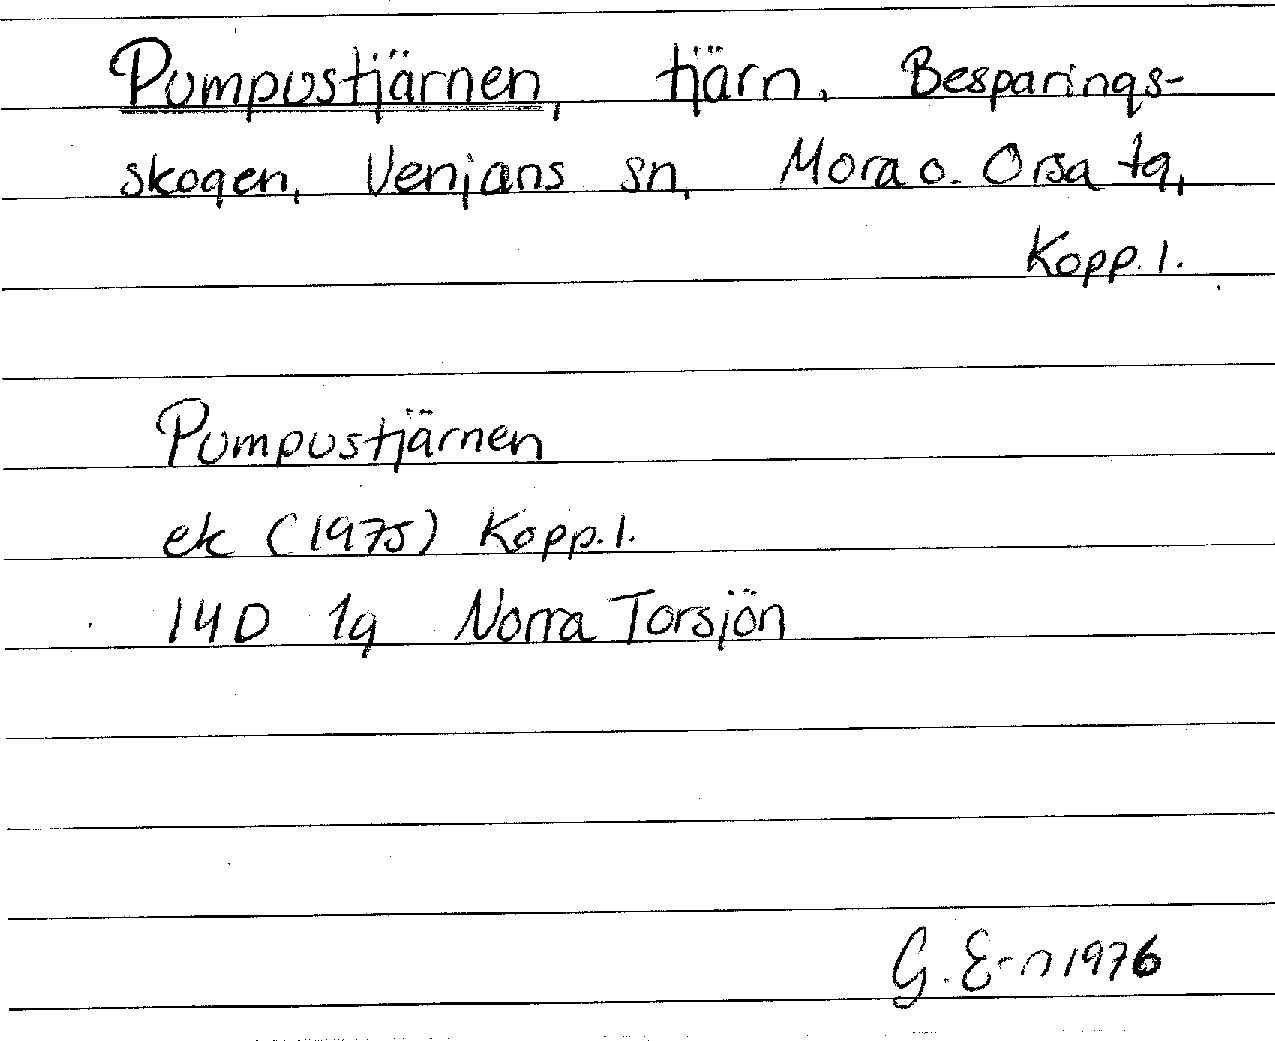 Pumpustjärnen, tjärn, Besparings-
skogen, Venjans sn, Mora o. Orsa tg,
Kopp. l.
Pumpustjärnen
ek (1975) Kopp. l.
14D 1g Norra Torsjön
G. E-n 1976